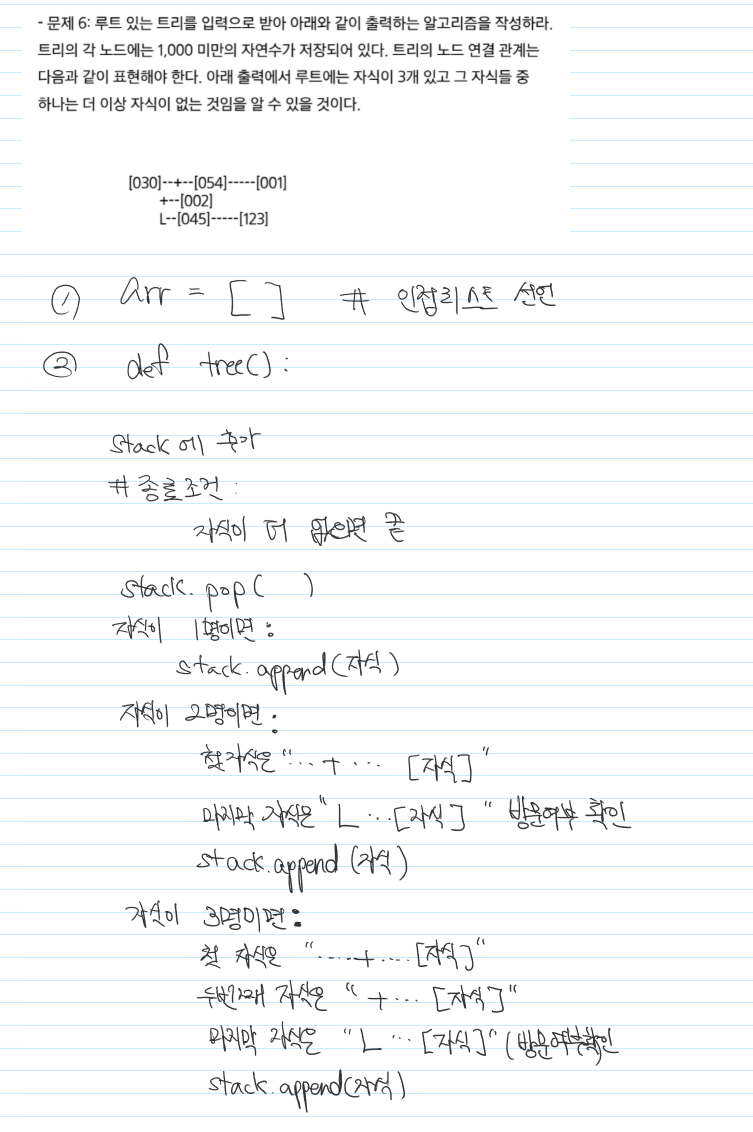 - 문제 6: 루트 있는 트리를 입력으로 받아 아래와 같이 출력하는 알고리즘을 작성하라.
트리의 각 노드에는 1,000 미만의 자연수가 저장되어 있다. 트리의 노드 연결 관계는
다음과 같이 표현해야 한다. 아래 출력에서 루트에는 자식이 3개 있고 그 자식들 중
하나는 더 이상 자식이 없는 것임을 알 수 있을 것이다.
[030]--+--[054]-----[001]
+--[002]
L--[045]-----[123]
① arr = [ ] # 인접리스트 선언
② def tree():
stack에 추가
# 종료조건:
자식이 더 없으면 끝
stack.pop( )
자식이 1명이면:
stack.append(자식)
자식이 2명이면:
첫 자식은 "--+-- [자식]"
마지막 자식은 "L--[자식]" 방문여부 확인
stack.append(자식)
자식이 3명이면:
첫 자식은 "----+---[자식]"
두번째 자식은 "+-- [자식]"
마지막 자식은 "L--[자식]" (방문여부확인
stack.append(자식)